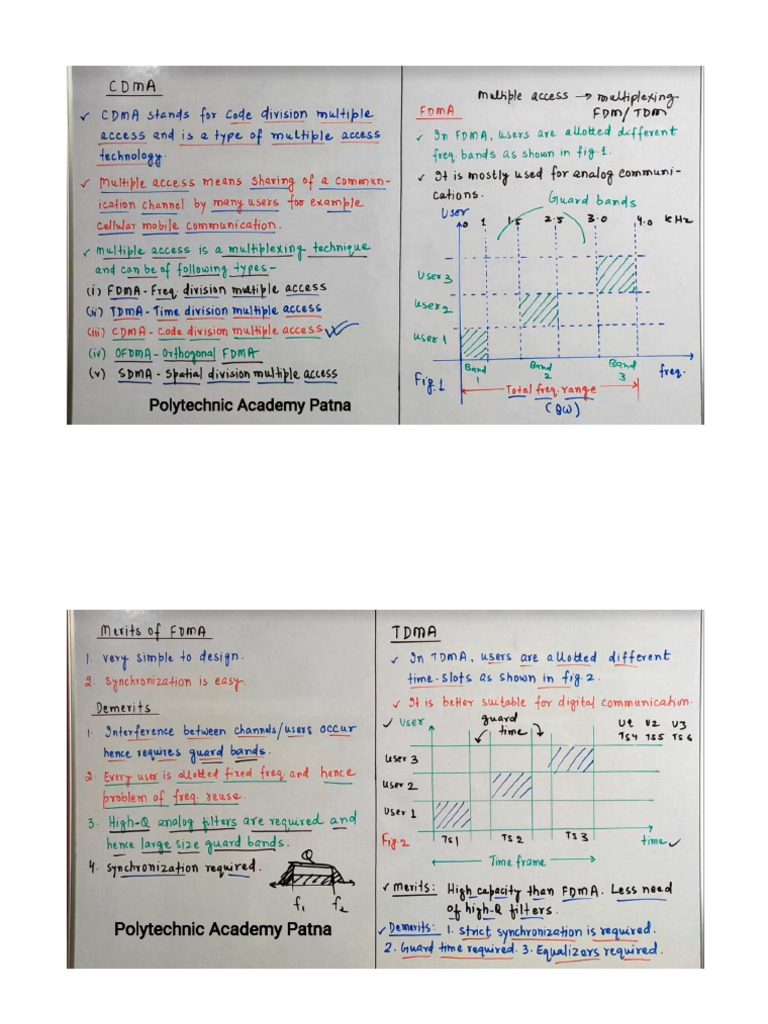 CDMA
✓ CDMA stands for Code division multiple
access and is a type of multiple access
technology.
✓ Multiple access means sharing of a commun-
ication channel by many users for example
cellular mobile communication.
✓ Multiple access is a multiplexing technique
and can be of following types-
(i) FDMA - Freq. division multiple access
(ii) TDMA - Time division multiple access
(iii) CDMA - Code division multiple access ✓
(iv) OFDMA - Orthogonal FDMA
(v) SDMA - Spatial division multiple access
Polytechnic Academy Patna
Multiple access → multiplexing
FDM/TDM
FDMA
✓ In FDMA, users are allotted different
freq. bands as shown in fig.1.
✓ It is mostly used for analog communi-
cations.
Guard bands
User
0 1 1.5 2.5 3.0 4.0 kHz
User 3
User 2
User 1
Band 1
Band 2
Band 3
freq.
Fig.1
Total freq. range
(BW)
Merits of FDMA
1. Very simple to design.
2. Synchronization is easy.
Demerits
1. Interference between channels/users occur
hence requires guard bands.
2. Every user is allotted fixed freq. and hence
problem of freq. reuse.
3. High-Q analog filters are required and
hence large size guard bands.
4. Synchronization required.
Q
f1 f2
Polytechnic Academy Patna
TDMA
✓ In TDMA, users are allotted different
time-slots as shown in fig.2.
✓ It is better suitable for digital communication.
✓ User
guard
time
U1 U2 U3
TS4 TS5 TS6
User 3
User 2
User 1
Fig.2
TS1 TS2 TS3
time ✓
Time frame
✓ Merits: High capacity than FDMA. Less need
of high-Q filters.
✓ Demerits: 1. Strict synchronization is required.
2. Guard time required. 3. Equalizers required.